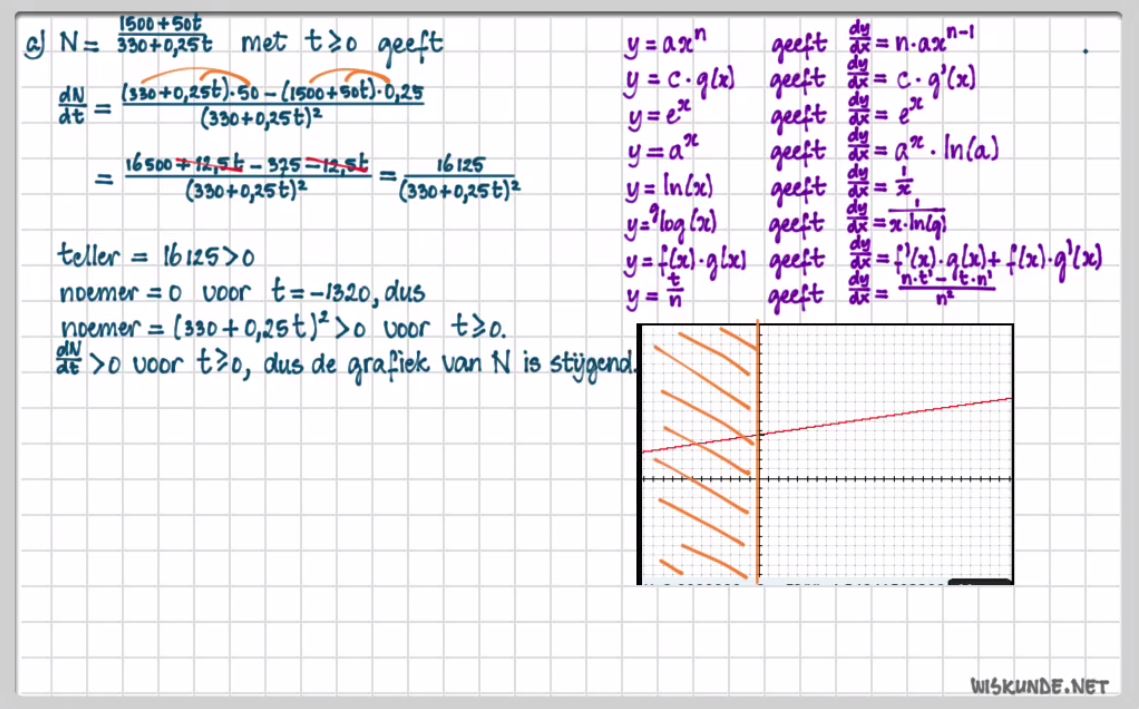 a) N = (1500+50t)/(330+0,25t) met t≥0 geeft
dN/dt = ((330+0,25t)·50 − (1500+50t)·0,25)/(330+0,25t)²
= (16500 + 12,5t − 375 − 12,5t)/(330+0,25t)² = 16125/(330+0,25t)²
teller = 16125>0
noemer = 0 voor t = −1320, dus
noemer = (330 + 0,25t)² >0 voor t≥0.
dN/dt >0 voor t≥0, dus de grafiek van N is stijgend.
y = axⁿ geeft dy/dx = n·axⁿ⁻¹
y = c·g(x) geeft dy/dx = c·g'(x)
y = eˣ geeft dy/dx = eˣ
y = aˣ geeft dy/dx = aˣ·ln(a)
y = ln(x) geeft dy/dx = 1/x
y = ᵍlog(x) geeft dy/dx = 1/(x·ln(g))
y = f(x)·g(x) geeft dy/dx = f'(x)·g(x) + f(x)·g'(x)
y = t/n geeft dy/dx = (n·t' − t·n')/n²
WISKUNDE.NET